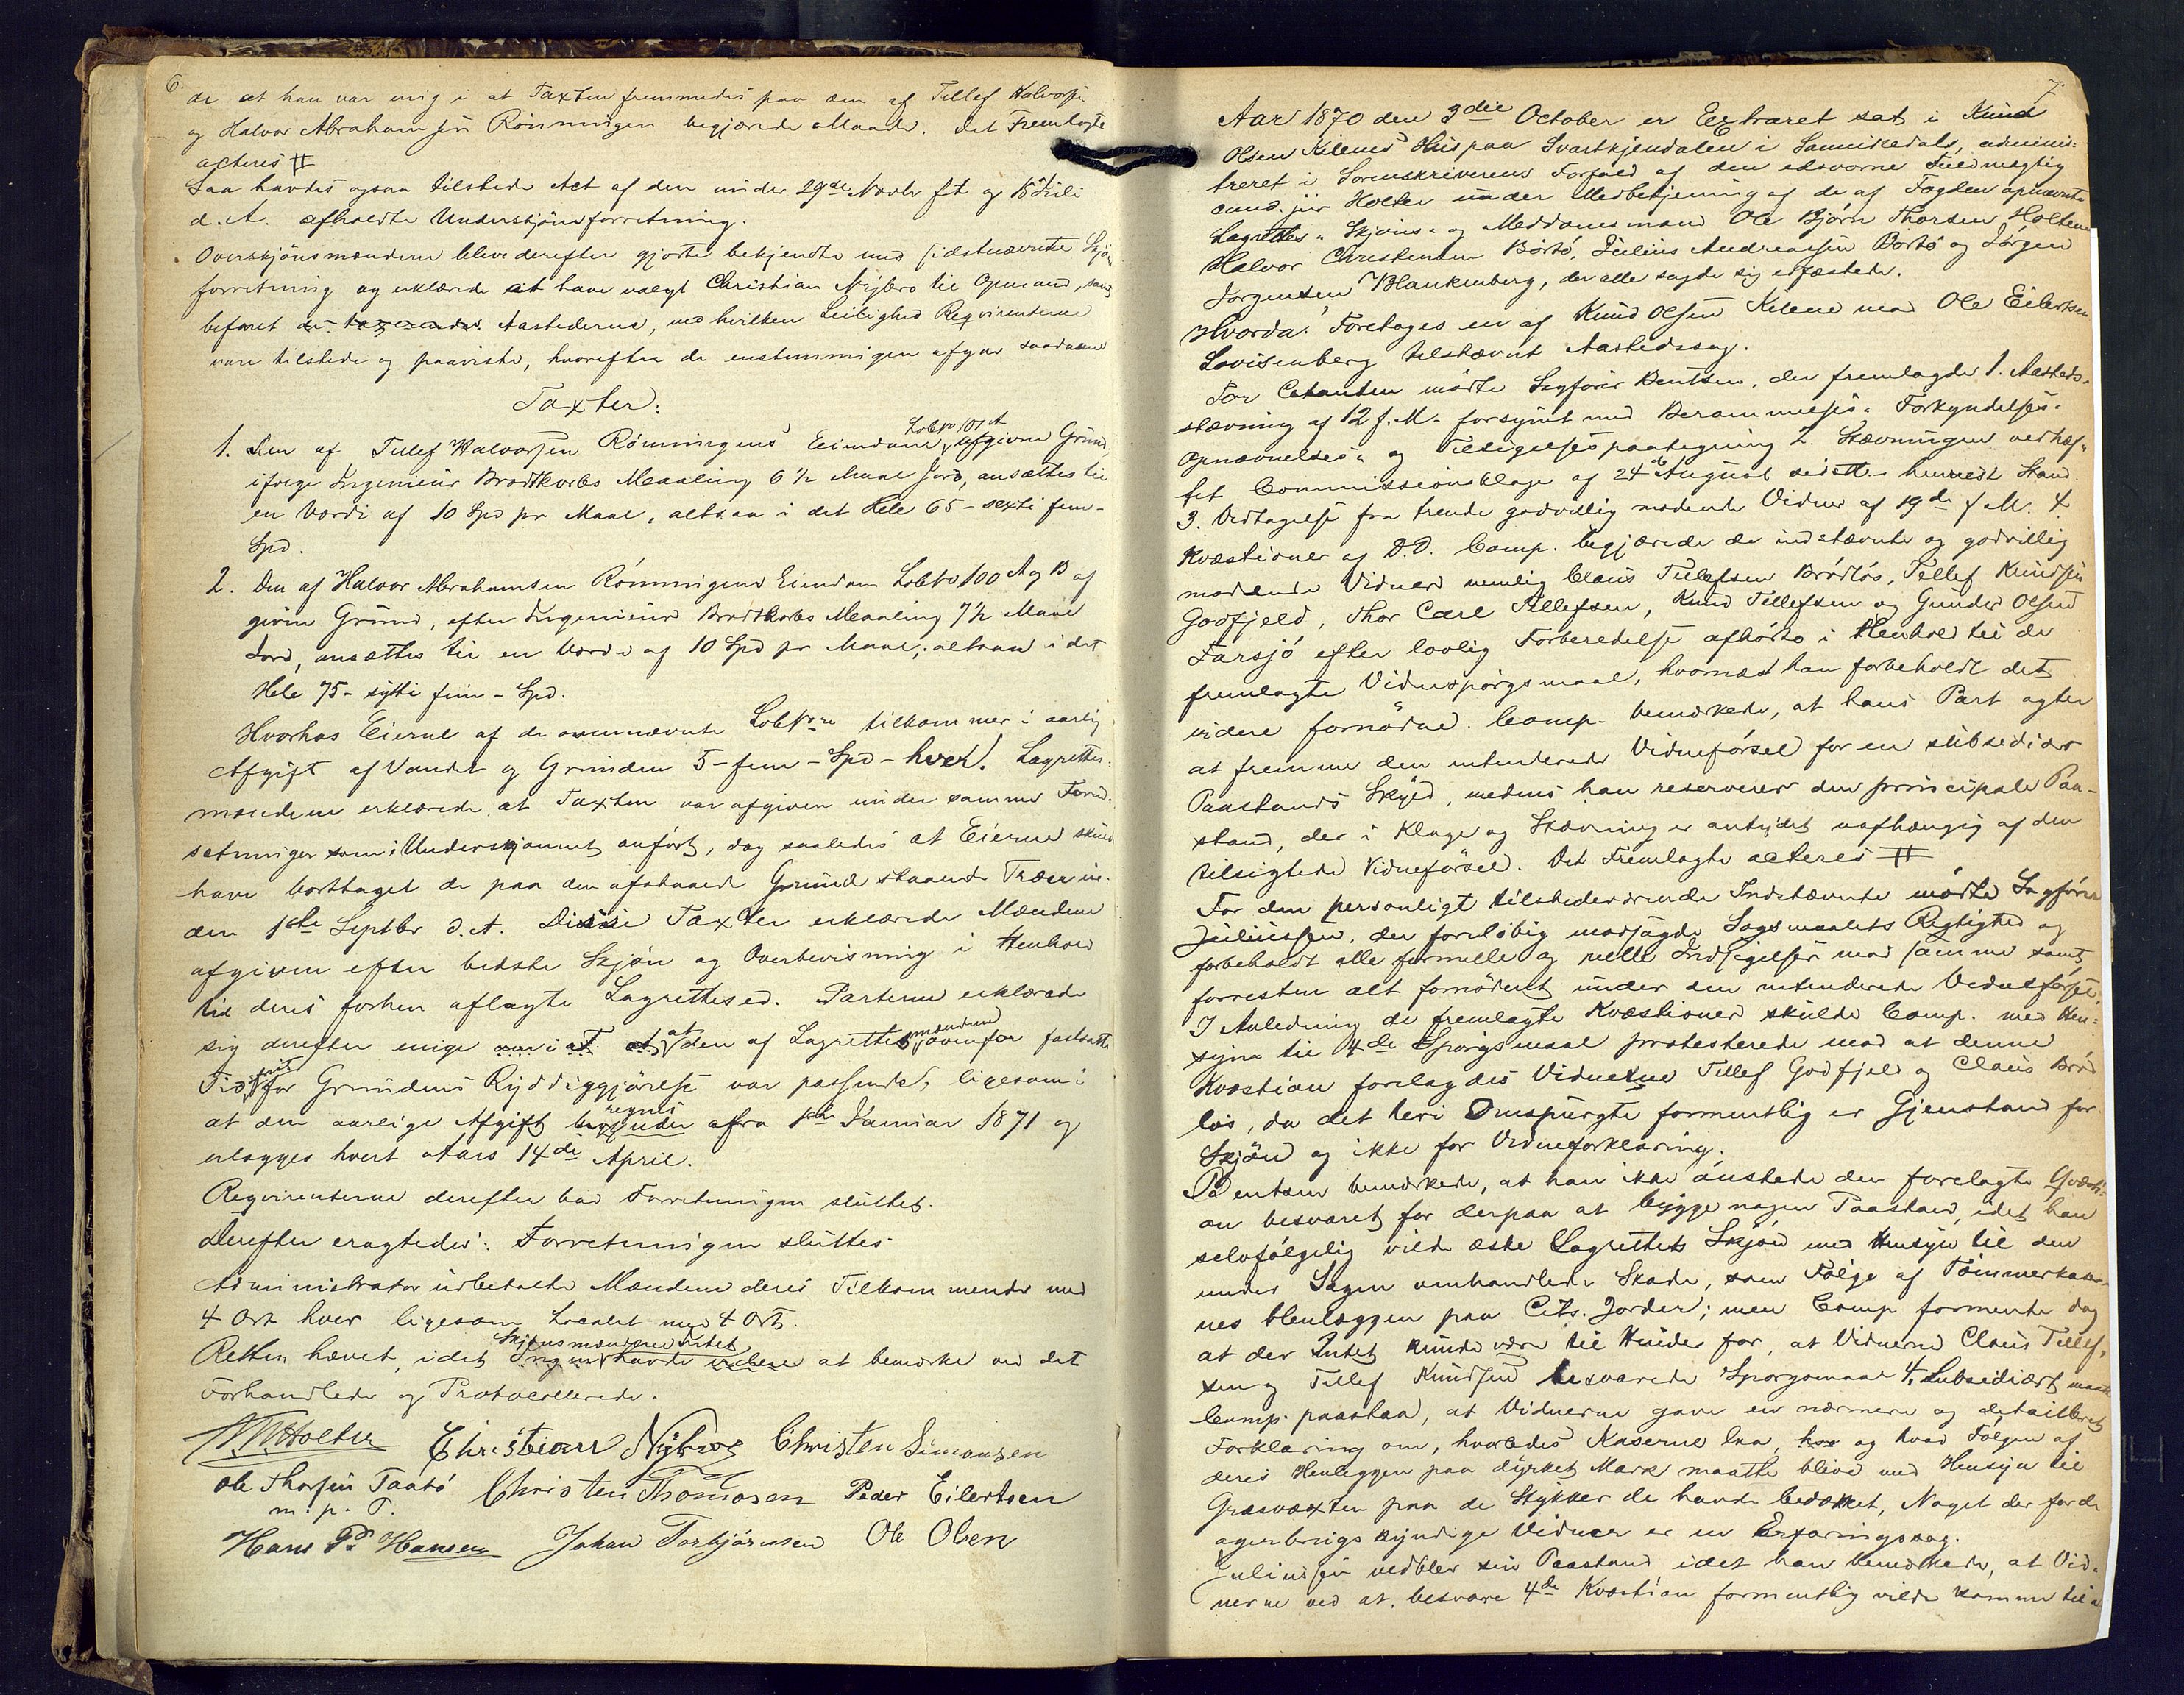 6.
de at han var enig i at Taxten fremmedes paa den af Tellef Halvorsen
og Halvor Abrahamsen Rönningen begjærede Maade. Det Fremlagte
acteres #
Saa havdes ogsaa tilstede Act af den under 29de Novbr f.A. og 15 Juli
d. A. afholdte Underskjönsforretning.
Overskjönsmændene bleve derefter gjorte bekjendte med sidstnævnte Skjöns
forretning og erklærede at have valgt Christian Nybro til Opmand, samt
befaret Aastederne, ved hvilken Leilighed Reqvirenterne
vare tilstede og paaviste, hvorefter de enstemmigen afgav saadanne
Taxter:
1. Den af Tellef Halvorsen Rönningens Eiendom Löbno 101 A afgivne Grund,
ifölge Ingeniör Bradtkorbs Maaling 6 1/2 Maal Jord, ansættes til
en Værdi af 10 Spd pr Maal, altsaa i det Hele 65 - sexti fem -
Spd.
2. Den af Halvor Abrahamsen Rönningens Eiendom Löbno 100 A og B af
givne Grund, efter Ingeniörs Bradtkorbs Maaling 7 1/2 Maal
Jord, ansættes til en Værdi af 10 Spd pr Maal, altsaa i det
Hele 75 - sytti fem - Spd.
Hvorhos Eierne af de ovennævnte Löbnoe tilkommer i aarlig
Afgift af Vandet og Grunden 5 - fem - Spd - hver. Lagrettes-
mændene erklærede at Taxten var afgiven under samme Forud-
sætninger som i Underskjönnet anfört, dog saaledes at Eierne skulde
have borttaget de paa den afstaaede Grund staaende Træer in-
den 1ste Septbr d. A. Disse Taxter erklærede Mændene
afgivne efter bedste Skjön og Overbevisning i Henhold
til deres forhen aflagte Lagrettesed. Parterne erklærede
sig derefter enige i at den af Lagrettesmændene ovenfor fastsatte
Tidsfrist for Grundens Ryddiggjörelse var passende, ligesom i
at den aarlige Afgift regnes afra 1ste Januar 1871 og
erlægges hvert Aars 14de April.
Reqvirenterne derefter bad Forretningen sluttet.
Derefter eragtedes: Forretningen sluttes.
Administrator udbetalte Mændene deres Tilkommende med
4 Ort hver ligesom Localet med 4 Ort.
Retten hævet, idet Skjönsmændene Intet havde at bemærke ved det
Forhandlede og Protocollerede.
Holter Christian Nybroe Christen Simonsen
Ole Thorsen Taatö Christen Thomasen Peder Eilertsen
m. p. P.
Hans Ps Hansen Johan Torbjörnsen Ole Olsen
7.
Aar 1870 den 3die October er Extraret sat i Knud
Olsen Kilens Hus paa Svartkjendalen i Sannikedals, adminis-
treret i Sorenskriverens Forfald af den edsvorne Fuldmægtig
cand. jur Holter under Medbetjening af de af Fogden opnævnte
Lagrettes- Skjöns- og Meddomsmænd Ole Björn Thorsen Holtene
Halvor Christensen Börtö, Julius Andreassen Börtö og Jörgen
Jörgensen Blankenberg, der alle sagde sig edfæstede.
Hvorda: Foretoges en af Knud Olsen Kilene mod Ole Eilertsen
Lovisenberg tilstævnt Aastedssag.
For Citanten mödte Sagförer Bentsen, der fremlagde 1. Aasteds-
stævning af 12 f. M. forsynet med Berammelses- Forkyndelses-
Opnævnelses- og Tilsigelsespaategning 2. Stævningen vedhæf-
tet Commissionsklage af 24de August sidstl.
3. Vedtagelse fra trende godvillig mödende Vidner af 19de f. M. 4.
Kvæstioner af D.D. Comp. begjærede de indstævnte og godvillig
mödende Vidner nemlig Claus Tellefsen Brödlös, Tellef Knudsen
Godfjeld, Thor Carl Tellefsen, Knud Tellefsen og Gunder Olsen
Farsjö efter lovlig Forberedelse afhörte i Henhold til de
fremlagte Vidnespörgsmaal, hvornæst han forbeholdt det
videre fornödne. Comp. bemærkede, at hans Part agter
at fremme den intenderede Vidneförsel for en subsidiær
Paastands Skyld, medens han reserverer den principale Paa-
stand, der i Klage og Stævning er antydet uafhængig af den
tilsigtede Vidneförsel. Det Fremlagte acteres #
For den personligt tilstedeværende Indstævnte mödte Sagförer
Juliussen, der foreløbig modsagde Sagsmaalets Rigtighed og
forbeholdt alle formelle og reelle Indsigelser mod samme samt
forresten alt fornödent under den intenderede Vidneförsel.
I Anledning de fremlagte Kvæstioner skulde Comp. med Hen-
syn til 4de Spörgsmaal protestere mod at denne
Kvæstion forelagdes Vidnerne Tellef Godfjeld og Claus Bröd
lös, da det heri Omspurgte formentlig er Gjenstand for
Skjön og ikke for Vidneforklaring.
Bentsen bemærkede, at han ikke önskede den forelagte Qvæsti-
on besvaret for derpaa at bygge nogen Paastand, idet han
selvfölgelig vilde æske Lagrettets Skjön med Hensyn til den
under Sagen omhandlede Skade, som Fölge af Tömmerkaser-
nes Henlæggen paa Cits. Jorder; men Comp formente dog
at der Intet kunde være til Hinder for, at Vidnerne Claus Tellef-
sen og Tellef Knudsen besvarede Spörgsmaal 4. Subsidiært maatte
Comp. paastaa, at Vidnerne gave en nærmere og detailleret
Forklaring om, hvorledes Kaserne laa, og hvad Fölgen af
deres Henliggen paa dyrket Mark maatte blive med Hensyn til
Græsvæxten paa de Stykker de havde bedækket, Noget der for de
agerbrugskyndige Vidner er en Erfaringssag.
Juliussen vedblev sin Paastand idet han bemærkede, at Vid-
nerne ved at besvare 4de Kvæstion formentlig vilde komme til a